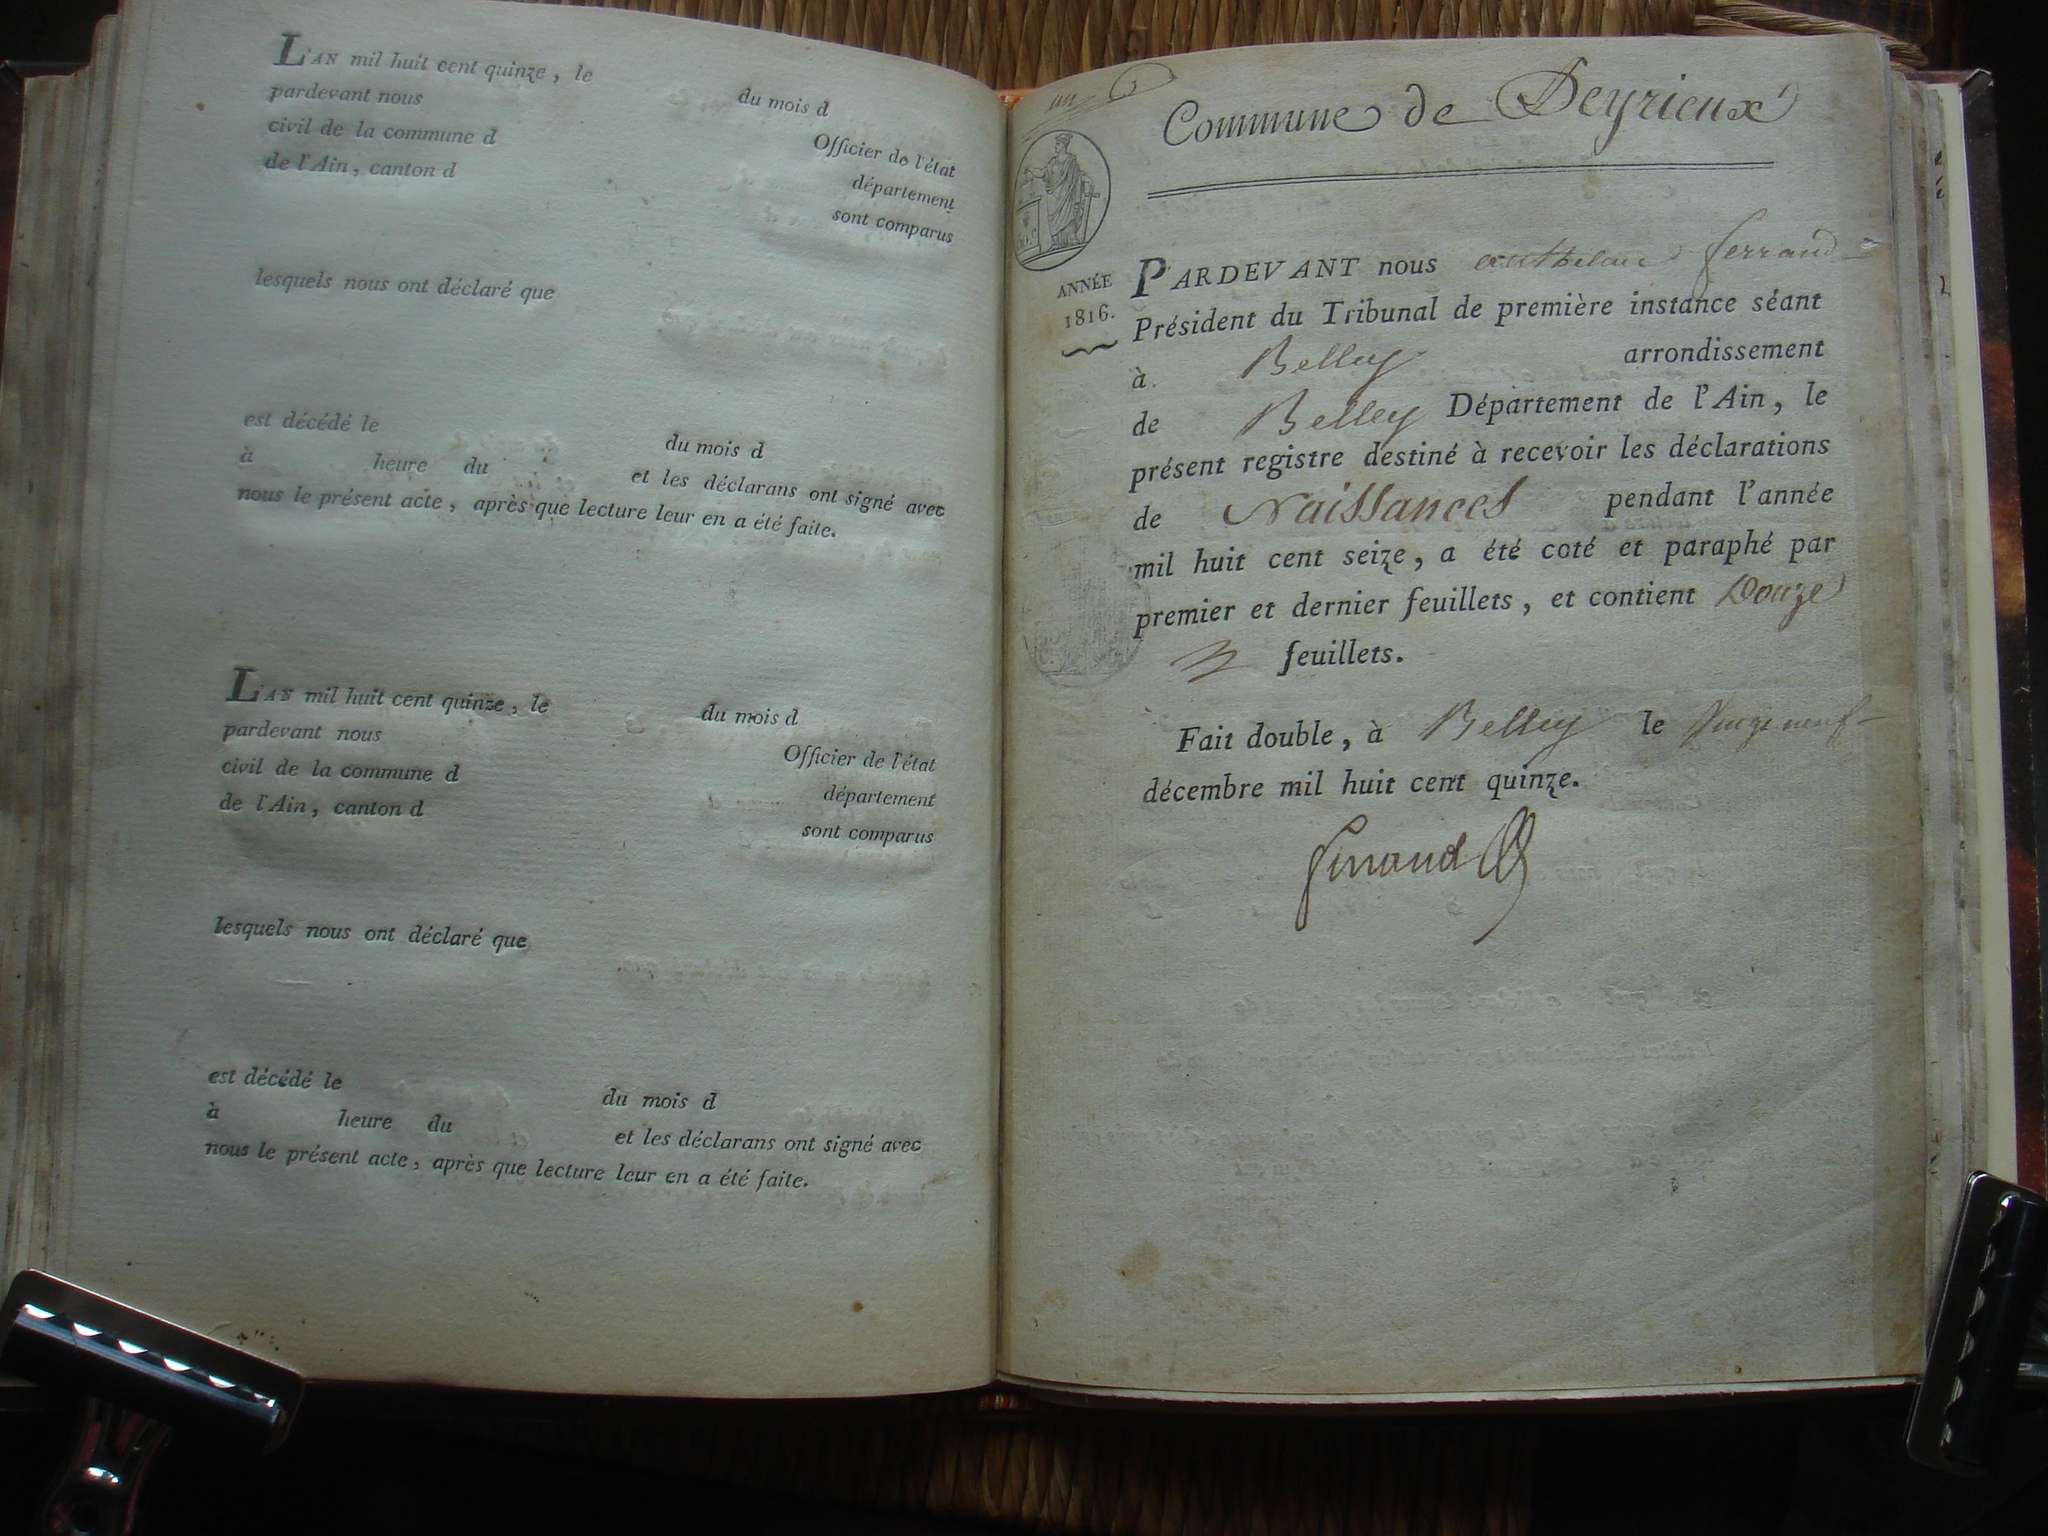 L'AN mil huit cent quinze, le du mois d
pardevant nous Officier de l'état
civil de la commune d département
de l'Ain, canton d sont comparus
lesquels nous ont déclaré que
est décédé le du mois d
à heure du et les déclarans ont signé avec
nous le présent acte, après que lecture leur en a été faite.
L'AN mil huit cent quinze, le du mois d
pardevant nous Officier de l'état
civil de la commune d département
de l'Ain, canton d sont comparus
lesquels nous ont déclaré que
est décédé le du mois d
à heure du et les déclarans ont signé avec
nous le présent acte, après que lecture leur en a été faite.
un
Commune de Peyrieux
ANNÉE
1816.
PARDEVANT nous anthelme ferrand
Président du Tribunal de première instance séant
à Belley arrondissement
de Belley Département de l'Ain, le
présent registre destiné à recevoir les déclarations
de Naissances pendant l'année
mil huit cent seize, a été coté et paraphé par
premier et dernier feuillets, et contient Douze
feuillets.
Fait double, à Belley le
décembre mil huit cent quinze.